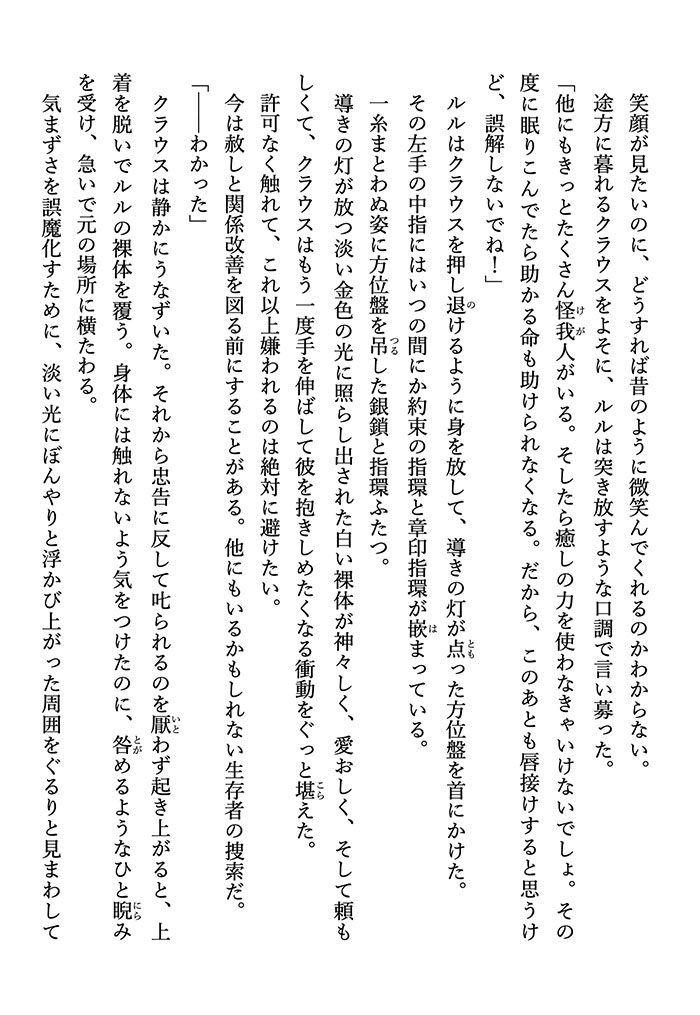 笑顔が見たいのに、どうすれば昔のように微笑んでくれるのかわからない。
途方に暮れるクラウスをよそに、ルルは突き放すような口調で言い募った。
「他にもきっとたくさん怪我人がいる。そしたら癒しの力を使わなきゃいけないでしょ。その
度に眠りこんでたら助かる命も助けられなくなる。だから、このあとも唇接けすると思うけ
ど、誤解しないでね！」
ルルはクラウスを押し退けるように身を放して、導きの灯が点った方位盤を首にかけた。
その左手の中指にはいつの間にか約束の指環と章印指環が嵌まっている。
一糸まとわぬ姿に方位盤を吊した銀鎖と指環ふたつ。
導きの灯が放つ淡い金色の光に照らし出された白い裸体が神々しく、愛おしく、そして頼も
しくて、クラウスはもう一度手を伸ばして彼を抱きしめたくなる衝動をぐっと堪えた。
許可なく触れて、これ以上嫌われるのは絶対に避けたい。
今は赦しと関係改善を図る前にすることがある。他にもいるかもしれない生存者の捜索だ。
「――わかった」
クラウスは静かにうなずいた。それから忠告に反して叱られるのを厭わず起き上がると、上
着を脱いでルルの裸体を覆う。身体には触れないよう気をつけたのに、咎めるようなひと睨み
を受け、急いで元の場所に横たわる。
気まずさを誤魔化すために、淡い光にぼんやりと浮かび上がった周囲をぐるりと見まわして